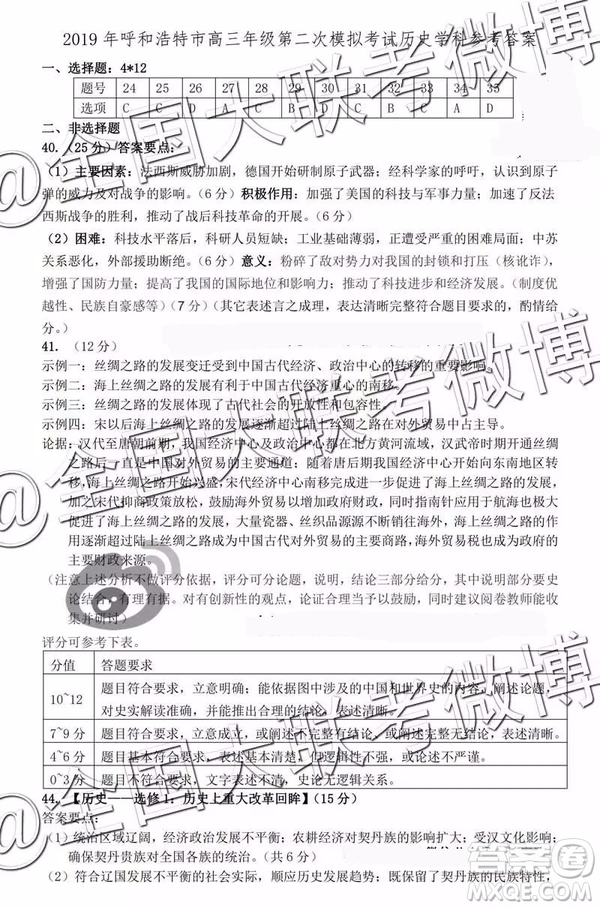 2019年呼和浩特市高三年级第二次模拟考试历史学科参考答案
一、选择题：4*12
题号 24 25 26 27 28 29 30 31 32 33 34 35
选项 C C D C A D A D
二、非选择题
40.（25分）答案要点：
（1）主要因素：法西斯威胁加剧，德国开始研制原子武器；经科学家的呼吁，认识到原子
弹的威力及对战争的影响。（6分）积极作用：加强了美国的科技与军事力量；加速了反法
西斯战争的胜利，推动了战后科技革命的开展。（6分）
（2）困难：科技水平落后，科研人员短缺；工业基础薄弱，面临着严重的困难局面；中苏
关系恶化，外部援助断绝。（6分）意义：粉碎了敌对势力对我国的封锁和打压（核讹诈），
增强了国防力量；提高了我国的国际地位和影响力；推动了科技进步和经济发展。（制度优
越性、民族自豪感等）（7分）（其它表述言之成理，只要完整符合题意要求的，酌情给
分。）
41.（12分）
示例一：丝绸之路的发展变迁受到中国古代经济、政治中心的转移的重要影响。
示例二：海上丝绸之路的发展得利于中国古代经济重心的南移。
示例三：丝绸之路的发展体现了古代社会的开放性和包容性。
示例四：宋以后海上丝绸之路的发展逐渐超过陆上丝绸之路对外贸易中占主导。
论据：汉代至唐朝前期，我国经济中心及政治中心都在北方黄河流域，汉武帝时期开通丝绸
之路后一直是中国古代对外贸易的主要通道；随着唐后期我国经济中心开始向东南地区转
移，海上丝绸之路开始兴盛；宋代我国经济中心南移完成进一步促进了海上丝绸之路的发
展，加之宋代抑商政策放松，鼓励海外贸易以增加政府财政，同时指南针应用于航海也极大
促进了海上丝绸之路的发展，大量瓷器、丝织品源源不断的出口到国外，海上丝绸之路的发展
逐渐超过陆上丝绸之路成为中国古代对外贸易的主要商路。海外贸易税也成为政府的
主要财政来源。
（注意上述分析不做评分依据，评分可分论题，说明，结论三部分给分，其中说明部分要史
论结合，有理有据。对有创新性的观点，可给予充分鼓励，同时建议阅卷教师能收
集并研讨）
评分可参考下表。
分值 答题要求
10~12 题目符合要求，立意明确；能依据图中涉及的中国古代的相关内容，阐述论题，
对史实解读准确；并能推出新的结论；表述清晰。
7~9分 题目符合要求，立意明确；阐述论题大体完整有少量欠缺，表述清晰。
4~6分 题目基本符合要求；史论基本一致，但逻辑性不强，或论述不严谨。
0~3分 题目不符合要求，文字表述不清，史论无逻辑关系。
44.【历史——选修1：历史上重大改革回眸】（15分）
答案要点：
（1）统治区域辽阔，经济政治发展不平衡；农耕经济对契丹族的影响扩大；受汉文化影响；
确保契丹贵族对全国各族的统治。（共6分）
（2）符合辽国发展不平衡的社会实际，顺应历史发展趋势；既保持了契丹人的民族特性，
@全国大联考微博
答案圈